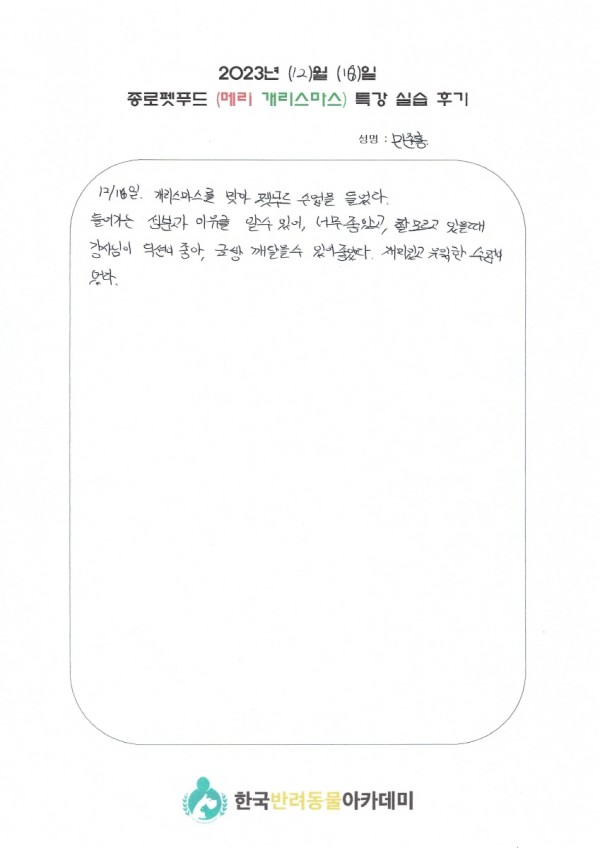 2023년 (12)월 (18)일
종로펫푸드 (메리 개리스마스) 특강 실습 후기
성명 :
12/18일. 개리스마스를 맞아 펫푸드 수업을 들었다.
들어가는 성분과 이유를 알 수 있어, 너무 좋았고, 잘 모르고 있을때
강사님이 딕션이 좋아, 금방 깨달을 수 있어 좋았다. 재미있고 유익한 수업이
었다.
한국반려동물아카데미